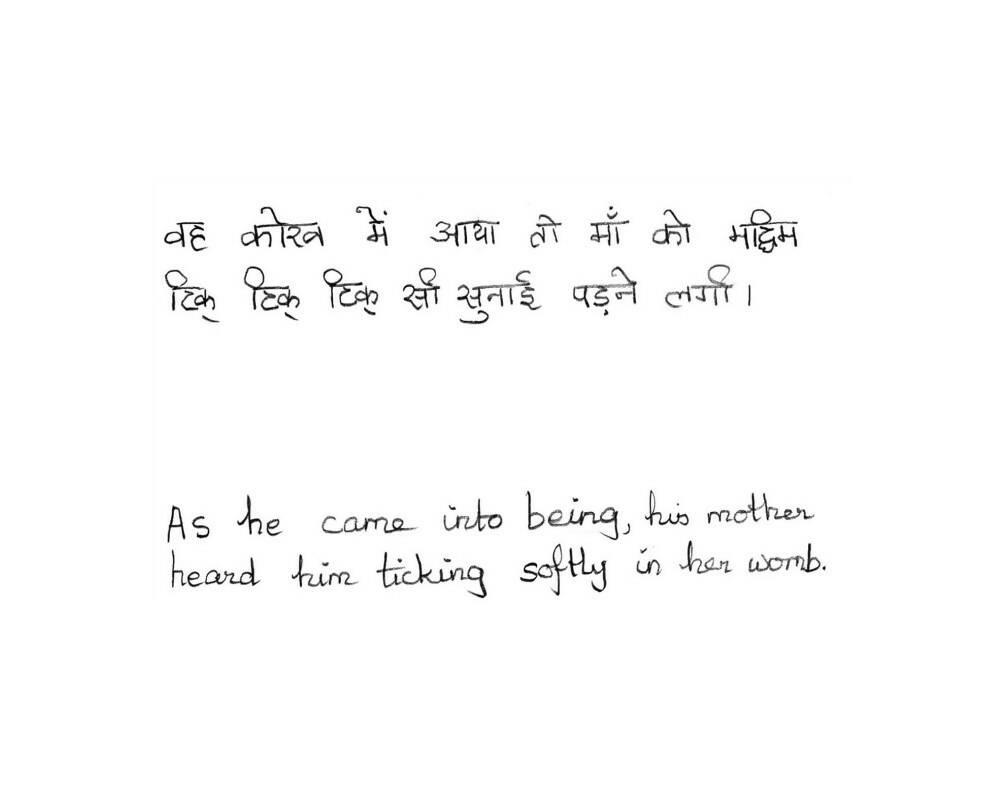 वह कोख में आया तो माँ को मद्धिम
टिक् टिक् टिक् सी सुनाई पड़ने लगी।
As he came into being, his mother
heard him ticking softly in her womb.